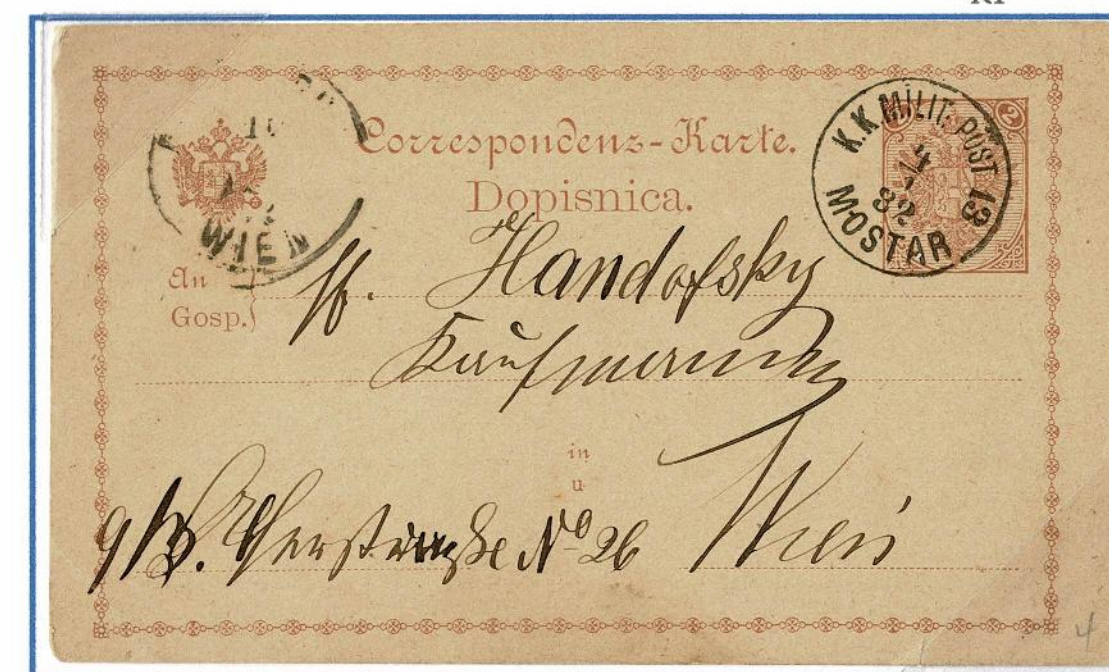 Correspondenz-Karte.
Dopisnica.
K.K. MILIT: POST 13
4
82
MOSTAR
2
WIEN
An
Gosp.
Handofsky
Kaufmann
in
u
Wien
No 26
4